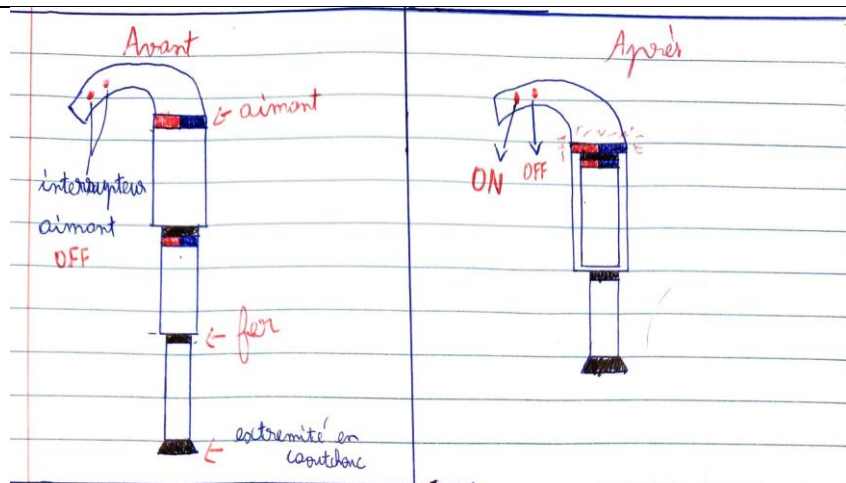 Avant
aimant
interrupteur
aimant
OFF
fer
extremité en
caoutchouc
Après
ON
OFF